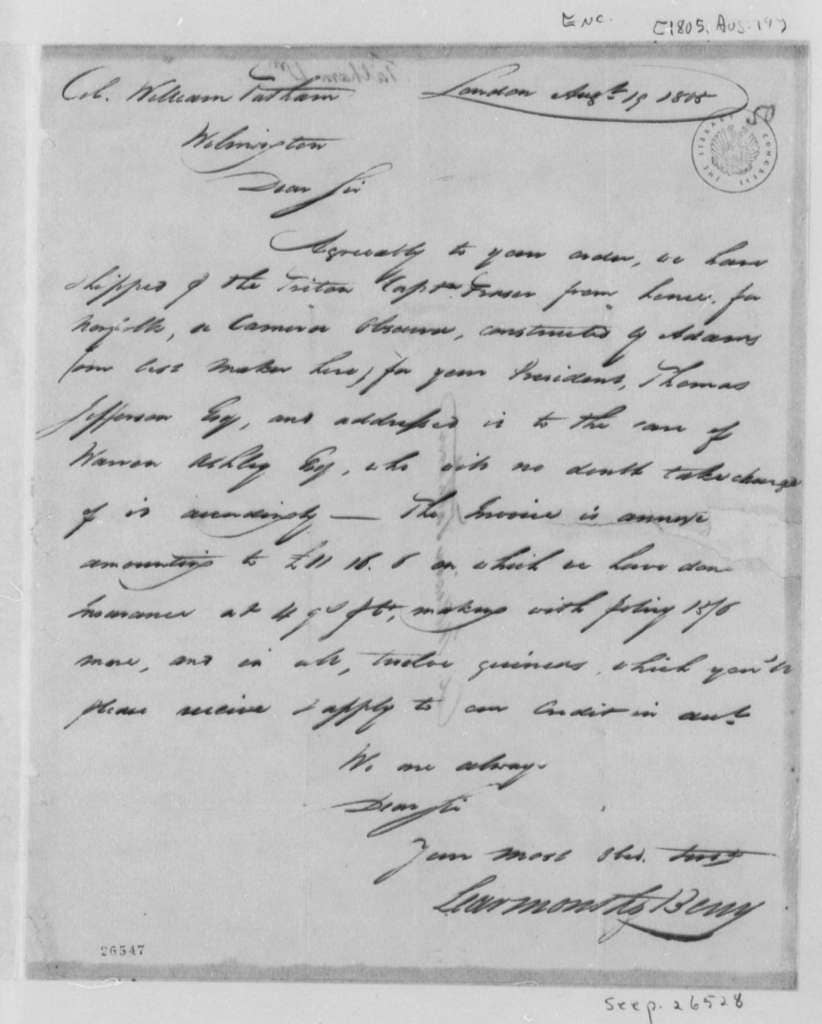 Enc. [1805, Aug. 19]
Col. William Tatham London Augt. 19 1805
50
THE LIBRARY OF CONGRESS
Wilmington
Dear Sir
Agreeably to your order, we have
shipped p the Triton Captn. Fraser from hence, for
Norfolk, a Camera Obscura, constructed by Adams
(our best maker here) for your President, Thomas
Jefferson Esq, and addressed it to the care of
Warren Ashley Esq, who will no doubt take charge
of it accordingly — The Invoice is annex'd
amounting to £11 16. 6 on which we have done
Insurance at 4 gs pCt, making with policy 15/6
more, and in all, twelve guineas, which you'll
please receive & apply to our Credit in acct.
We are always
Dear Sir
Your most Obed. Servts
Learmonth & Berry
26547
See p. 26528